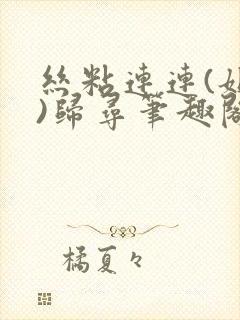 絲粘連連(
)歸尋筆趣閣
橘夏々